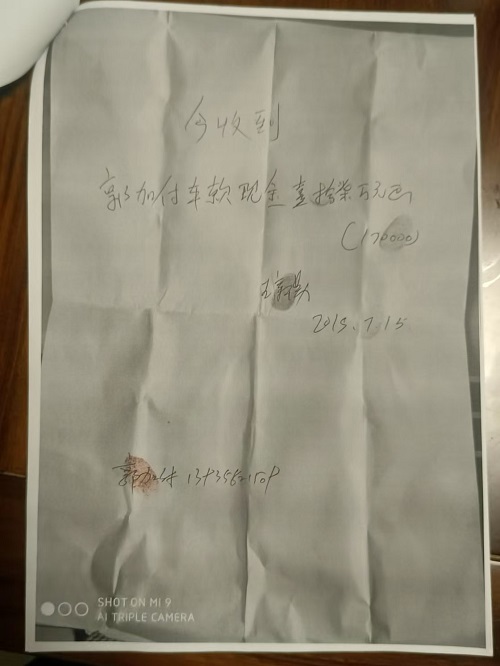 今收到
郭加付车款现金壹拾柒万元正
(170000)
2015.7.15
郭加付
SHOT ON MI 9
AI TRIPLE CAMERA